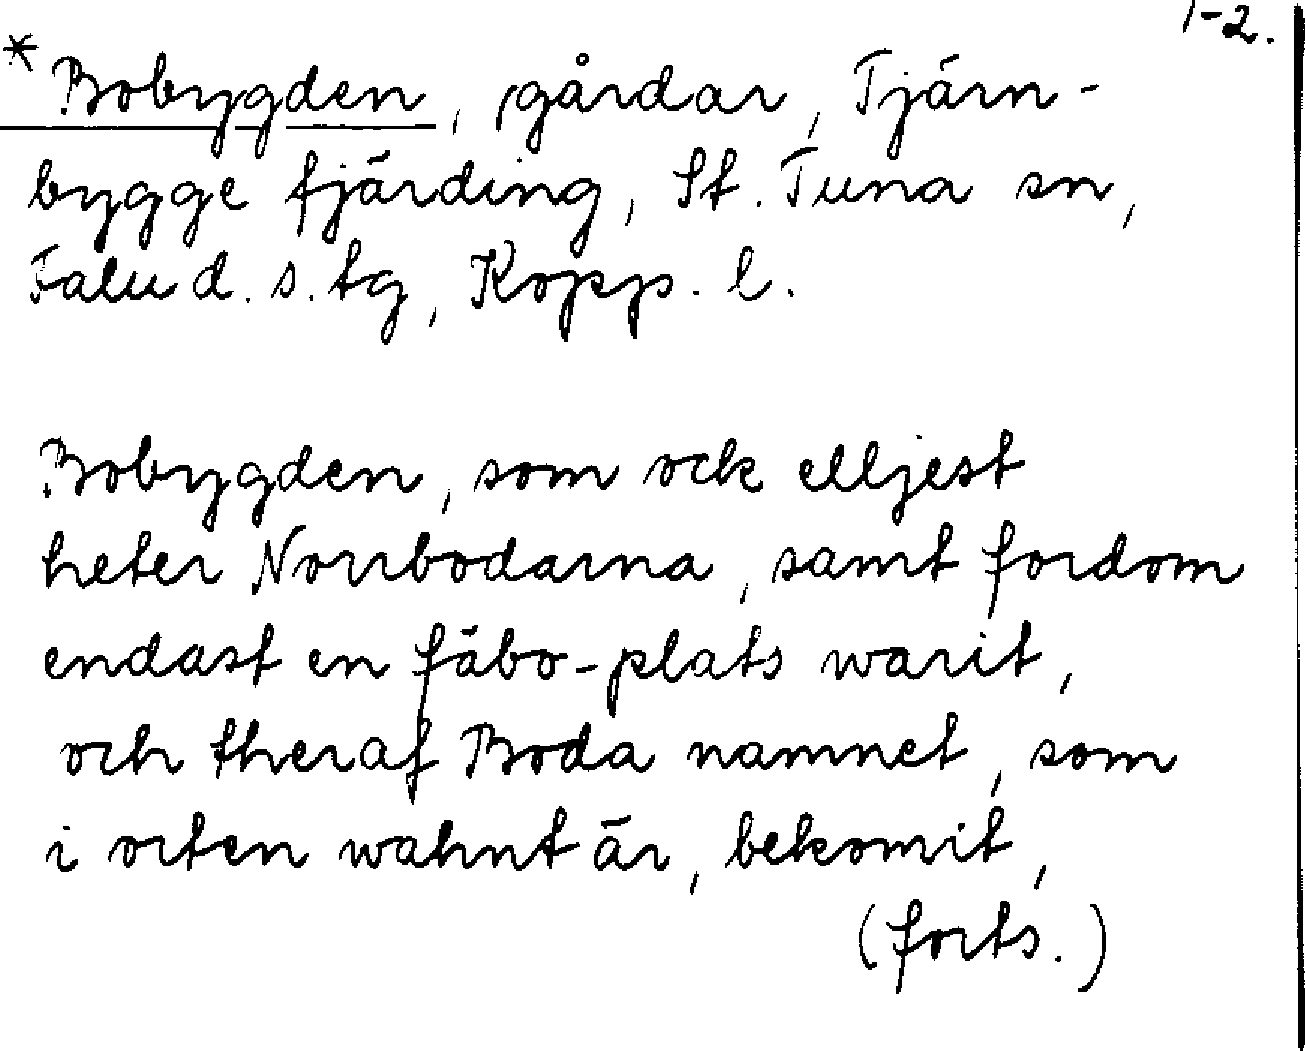 1-2.
* Bobygden, gårdar, Tjärn-
bygge fjärding, St. Tuna sn,
Falu d. s. tg, Kopp. l.
Bobygden, som ock elljest
heter Norrbodarna, samt fordom
endast en fäbo-plats warit,
och theraf Boda namnet, som
i orten wahnt är, bekomit,
(forts.)